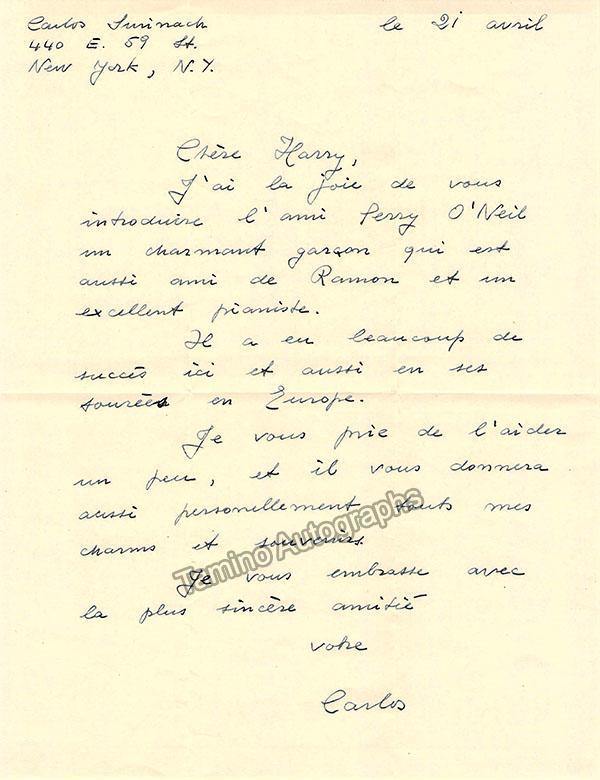 Carlos Surinach
le 21 avril
440 E. 59 St.
New York, N.Y.
Chère Harry,
J'ai la joie de vous
introduire l'ami Perry O'Neil
un charmant garçon qui est
aussi ami de Ramon et un
excellent pianiste.
Il a eu beaucoup de
succès ici et aussi en ses
tourées en Europe.
Je vous prie de l'aider
un peu, et il vous donnera
aussi personellement touts mes
charms et souvenirs.
Je vous embrasse avec
la plus sincère amitié
votre
Carlos
Tamino Autographs